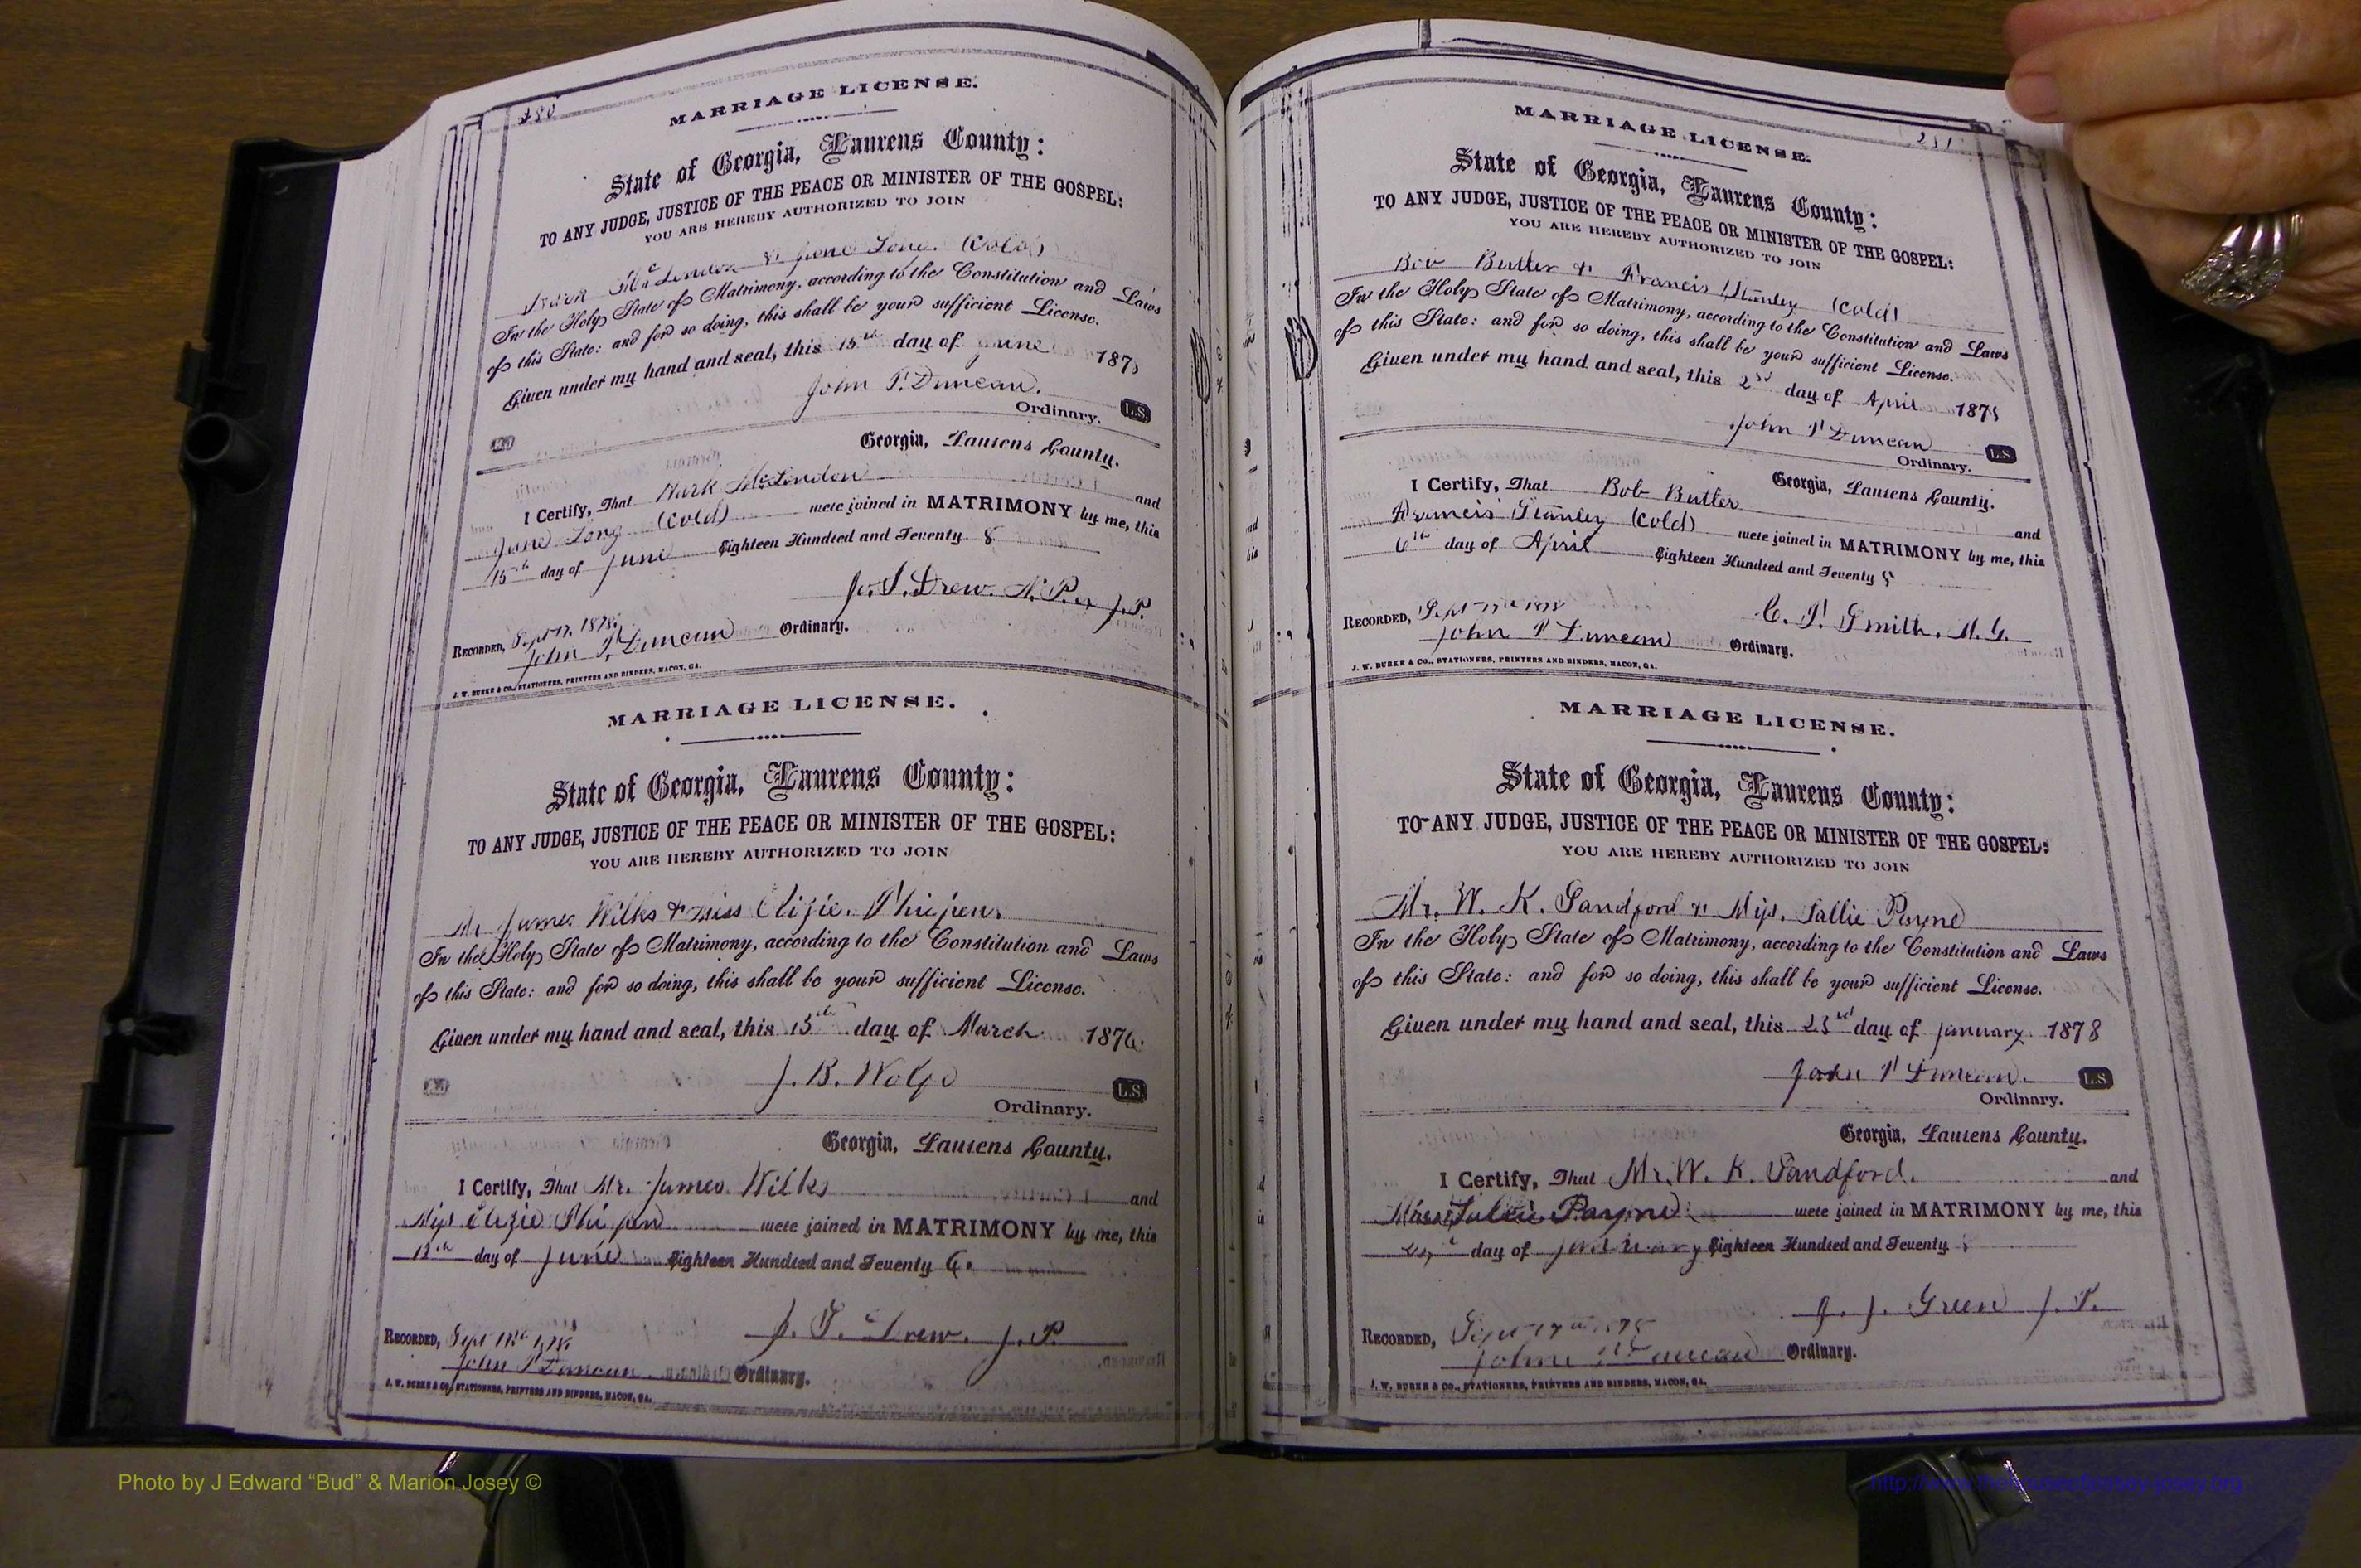 280
MARRIAGE LICENSE.
State of Georgia, Laurens County:
TO ANY JUDGE, JUSTICE OF THE PEACE OR MINISTER OF THE GOSPEL:
YOU ARE HEREBY AUTHORIZED TO JOIN
Mark McLendon & Jane Long. (Cold)
In the Holy State of Matrimony, according to the Constitution and Laws
of this State: and for so doing, this shall be your sufficient License.
Given under my hand and seal, this 15th day of June 187
John T. Duncan.
Ordinary. L.S.
Georgia, Laurens County.
I Certify, That Mark McLendon and
Jane Long (Cold) were joined in MATRIMONY by me, this
15th day of June Eighteen Hundred and Seventy 8
Jo. S. Drew. N.P. J.P.
RECORDED, Sept 17, 1878.
John T. Duncan Ordinary.
J. W. BURKE & CO., STATIONERS, PRINTERS AND BINDERS, MACON, GA.
MARRIAGE LICENSE.
State of Georgia, Laurens County:
TO ANY JUDGE, JUSTICE OF THE PEACE OR MINISTER OF THE GOSPEL:
YOU ARE HEREBY AUTHORIZED TO JOIN
Mr James Wilks & Miss Elizie.
In the Holy State of Matrimony, according to the Constitution and Laws
of this State: and for so doing, this shall be your sufficient License.
Given under my hand and seal, this 15th day of March 1876
J. B. Wolfe
Ordinary. L.S.
Georgia, Laurens County.
I Certify, That Mr. James Wilks and
Miss Elizie were joined in MATRIMONY by me, this
day of June Eighteen Hundred and Seventy 6.
J. S. Drew. J.P.
RECORDED, Sept 1878
John T Duncan Ordinary.
J. W. BURKE & CO., STATIONERS, PRINTERS AND BINDERS, MACON, GA.
281
MARRIAGE LICENSE.
State of Georgia, Laurens County:
TO ANY JUDGE, JUSTICE OF THE PEACE OR MINISTER OF THE GOSPEL:
YOU ARE HEREBY AUTHORIZED TO JOIN
Bob Butler & Francis Stanley (Cold)
In the Holy State of Matrimony, according to the Constitution and Laws
of this State: and for so doing, this shall be your sufficient License.
Given under my hand and seal, this 2nd day of April 187
John T Duncan
Ordinary. L.S.
Georgia, Laurens County.
I Certify, That Bob Butler and
Francis Stanley (Cold) were joined in MATRIMONY by me, this
6th day of April Eighteen Hundred and Seventy
C. T. Smith. M.G.
RECORDED, Sept 17th 1878
John T Duncan Ordinary.
J. W. BURKE & CO., STATIONERS, PRINTERS AND BINDERS, MACON, GA.
MARRIAGE LICENSE.
State of Georgia, Laurens County:
TO ANY JUDGE, JUSTICE OF THE PEACE OR MINISTER OF THE GOSPEL:
YOU ARE HEREBY AUTHORIZED TO JOIN
Mr. W. K. Sandford & Miss. Sallie Payne
In the Holy State of Matrimony, according to the Constitution and Laws
of this State: and for so doing, this shall be your sufficient License.
Given under my hand and seal, this 23rd day of January 1878
John T Duncan.
L.S.
Ordinary.
Georgia, Laurens County.
I Certify, That Mr. W. K. Sandford. and
Miss Sallie Payne were joined in MATRIMONY by me, this
day of January Eighteen Hundred and Seventy
J. J. Green J.P.
RECORDED, Sept 17th 1878
John T Duncan Ordinary.
J. W. BURKE & CO., STATIONERS, PRINTERS AND BINDERS, MACON, GA.
Photo by J Edward “Bud” & Marion Josey ©